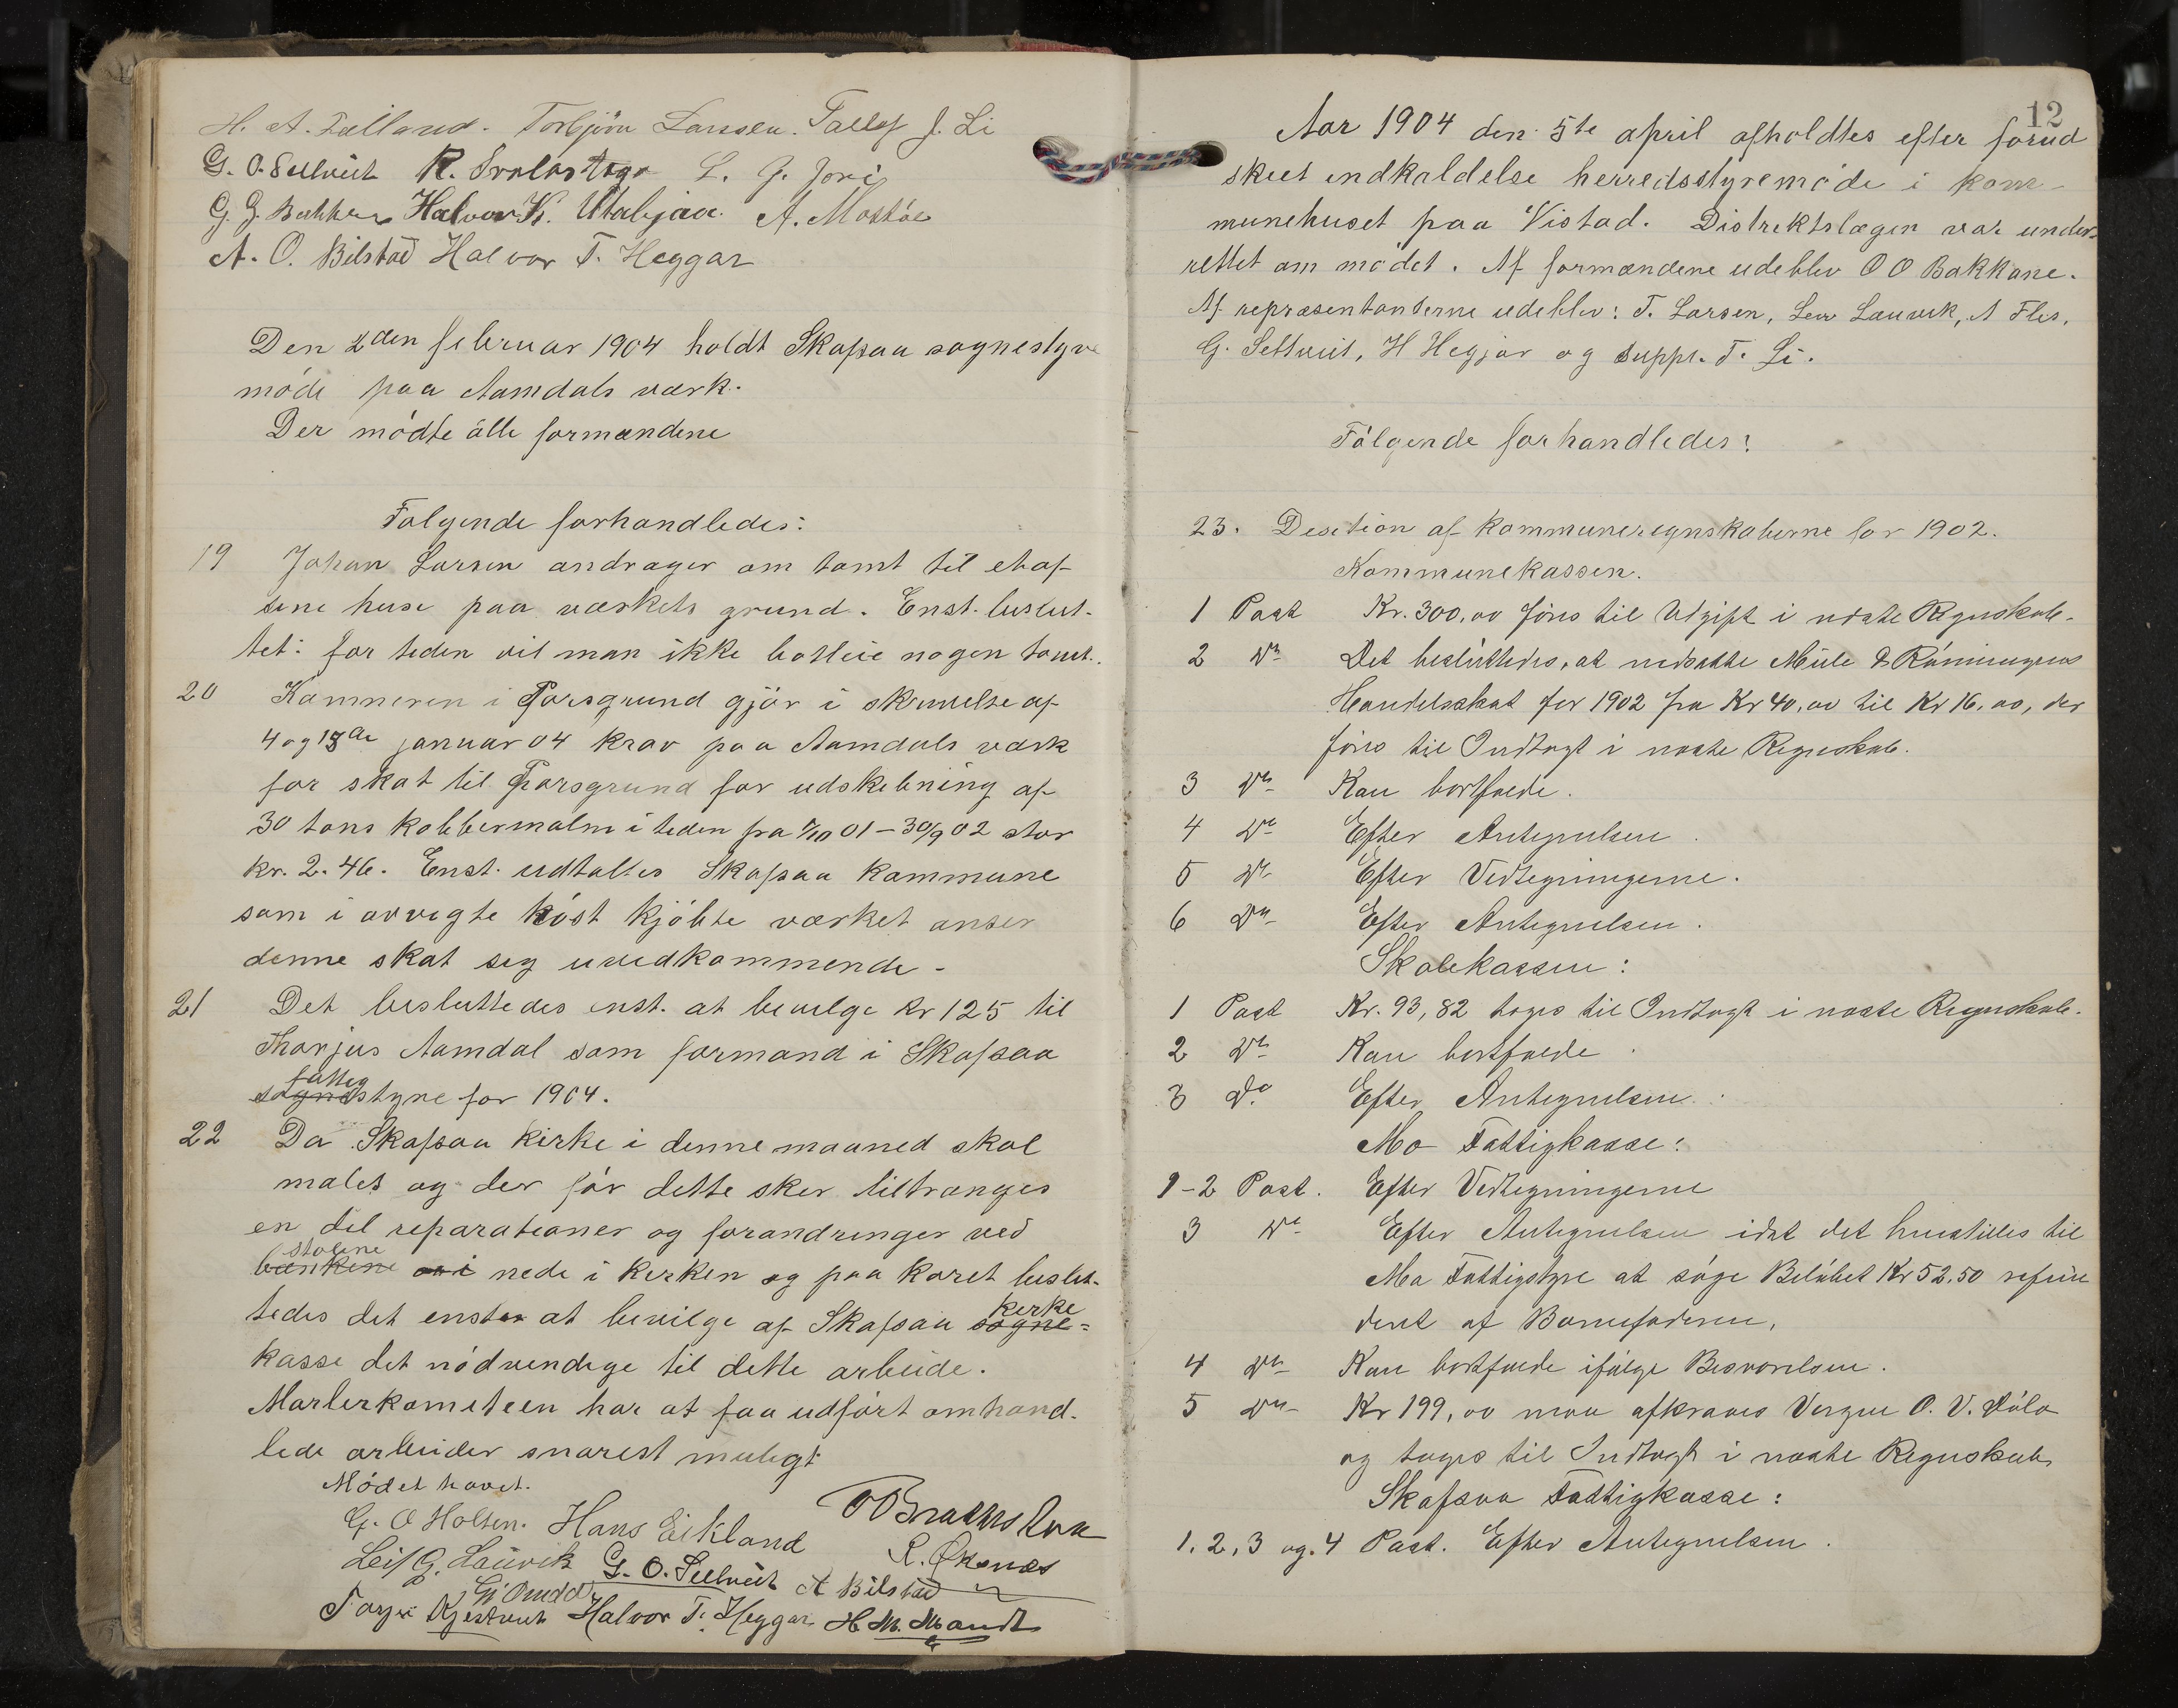 H. A. Tælland. Torbjörn Larssen. Tallef J. Li
G. O. Sellveit R. L. G.
G. G. Bakken Halvor K. Utabjaa. A. Mostøe
A. O. Bilstad Halvor T. Heggar
Den 2den februar 1904 holdt Skafsaa sognestyre
möde paa Aamdals værk.
Der mödte alle formændene
Følgende forhandledes:
19 Johan Larsen andrager om tomt til et af
sine huse paa værkets grund. Enst. beslut-
tet: for tiden vil man ikke bortleie nogen tomt.
20 Kæmneren i Porsgrund gjör i skrivelse af
4 og 13de januar 04 krav paa Aamdals værk
for skat til Porsgrund for udskibning af
30 tons kobbermalm i tiden fra 1/10 01 - 30/9 02 stor
kr. 2.46. Enst. udtaltes Skafsaa kommune
som i avvigte höst kjöbte værket anser
denne skat sig uvedkommende -
21 Det besluttedes enst. at bevilge kr 125 til
Thorjus Aamdal som formand i Skafsaa
fattig
sognestyre for 1904.
22 Da Skafsaa kirke i denne maaned skal
males og der för dette sker tiltrænges
en del reparationer og forandringer ved
stolene
bænkene nede i kirken og paa koret beslut-
tedes det enst at bevilge af Skafsaa sogne= kirke
kasse det nödvendige til dette arbeide.
Malerkomiteen har at faa udfört omhand-
lede arbeider snarest muligt
Mödet hævet.
G. O Holten. Hans Eikland
Leif G. Lauvik G. O. Sellveit A Bilstad R. Øksnes
Halvor T. Heggar H. M. Mandt
12
Aar 1904 den 5te april afholdtes efter forud
skeet indkaldelse herredsstyremöde i kom-
munehuset paa Vistad. Distriktslægen var under-
rettet om mödet. Af formændene udeblev O O Bakkane.
Af repræsentanterne udeblev: T. Larsen, Leiv Lauvik, A Flis,
G. Sellveit, H Hegjar og suppl. T. Li.
Fölgende forhandledes:
23. Desition af kommuneregnskaberne for 1902.
Kommunekassen.
1 Post Kr. 300,00 föres til Udgift i næste Regnskab.
2 Do Det besluttedes, at nedsætte Mule & Rönningens
Handelsskat for 1902 fra Kr 40,00 til Kr 16,00, der
föres til Indtægt i næste Regnskab.
3 Do Kan bortfalde.
4 Do Efter Antegnelsen.
5 Do Efter Vedtegningerne.
6 Do Efter Antegnelsen.
Skolekassen:
1 Post Kr. 93,82 tages til Indtægt i næste Regnskab.
2 Do Kan bortfalde.
3 Do Efter Antegnelsen.
Mo Fattigkasse:
1-2 Post. Efter Vedtegningerne
3 Do Efter Antegnelsen idet det henstilles til
Mo Fattigstyre at söge Belöbet Kr 52,50 refun
deret af Barnefaderen.
4 Do Kan bortfalde ifölge Besvarelsen.
5 Do Kr 199,00 maa afkræves Vergen O. V.
og tages til Indtægt i næste Regnskab.
Skafsaa Fattigkasse:
1, 2, 3 og 4 Post. Efter Antegnelsen.